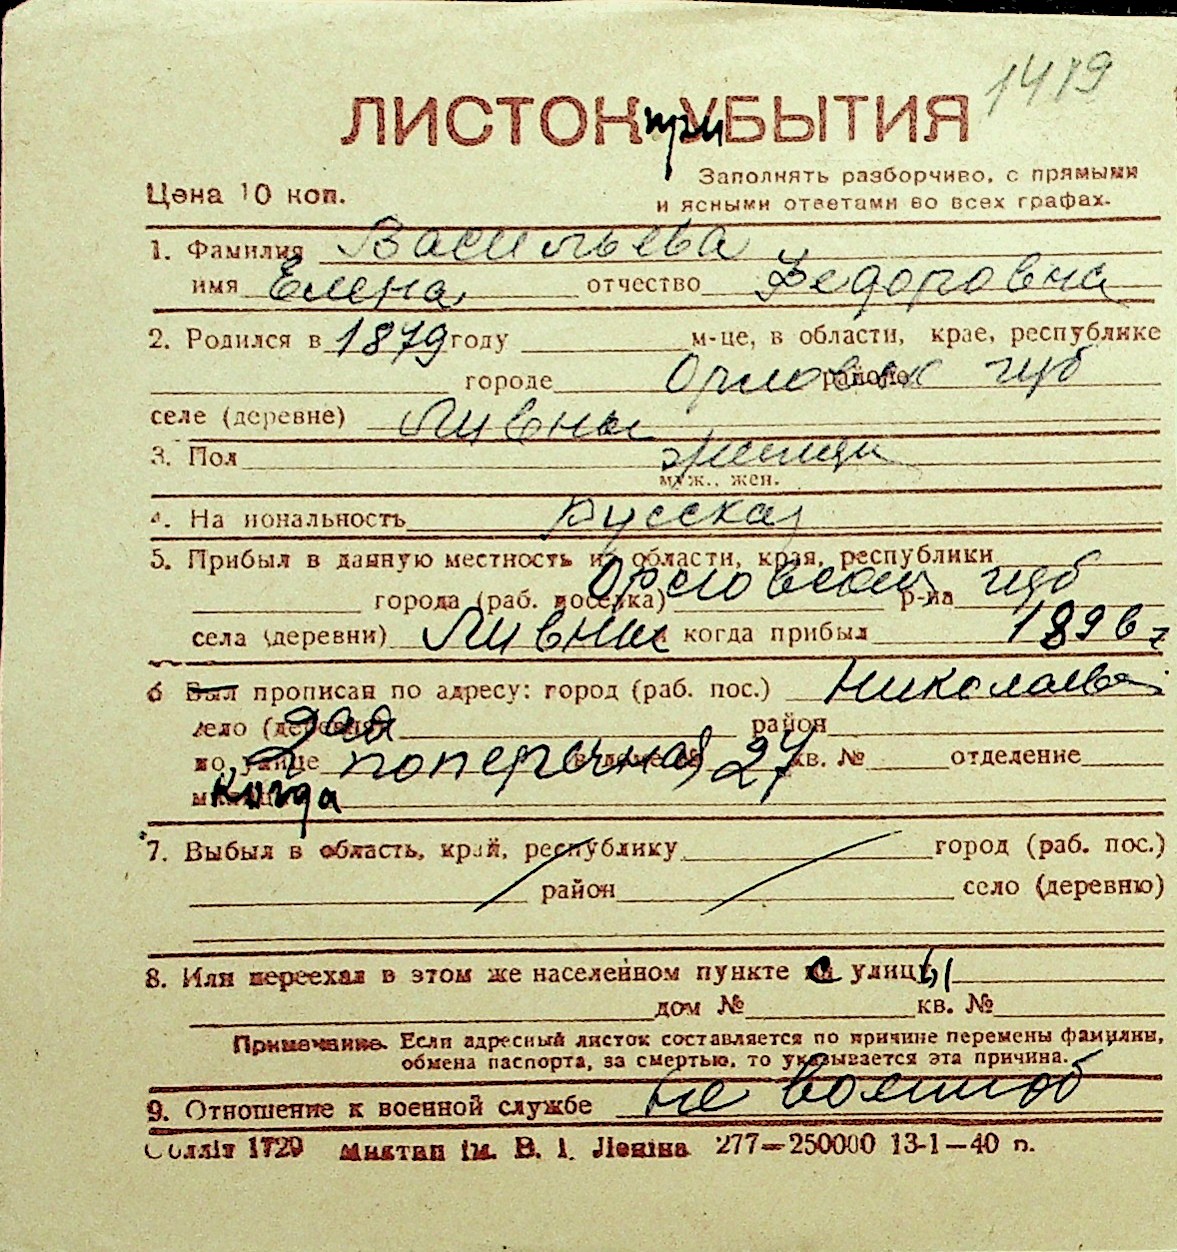 1419
ЛИСТОК при УБЫТИЯ
Цена 10 коп.
Заполнять разборчиво, с прямыми
и ясными ответами во всех графах.
1. Фамилия Васильева
имя Елена отчество Федоровна
2. Родился в 1879 году м-це, в области, крае, республике
городе Орловск губ районе
селе (деревне) Ливны
3. Пол женщи
муж., жен.
4. Национальность Русская
5. Прибыл в данную местность из области, края, республики
города (раб. поселка) Орловской р-на губ
села (деревни) Ливны и когда прибыл 1896 г
6 Был прописан по адресу: город (раб. пос.) Николаев
село (деревня) район
по улице 2ая поперечная 27 кв. № отделение
Когда
7. Выбыл в область, край, республику город (раб. пос.)
район село (деревню)
8. Или переехал в этом же населенном пункте с улицы
дом № кв. №
Примечание. Если адресный листок составляется по причине перемены фамилии,
обмена паспорта, за смертью, то указывается эта причина.
9. Отношение к военной службе не военнооб
1729 ім. В. І. Леніна 277—250000 13-1—40 п.